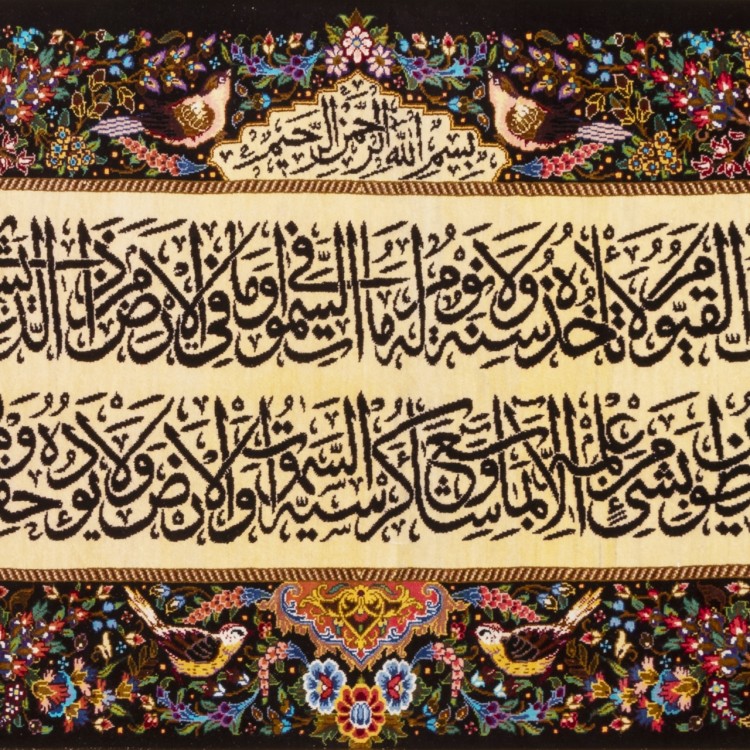 بِسْمِ اللهِ الرَّحْمٰنِ الرَّحِيمِ
القَيُّومُ لَا تَأْخُذُهُ سِنَةٌ وَلَا نَوْمٌ لَهُ مَا فِي السَّمٰوَاتِ وَمَا فِي الْأَرْضِ مَنْ ذَا الَّذِي
بِشَيْءٍ مِنْ عِلْمِهِ إِلَّا بِمَا شَاءَ وَسِعَ كُرْسِيُّهُ السَّمٰوَاتِ وَالْأَرْضَ وَلَا يَؤُدُهُ